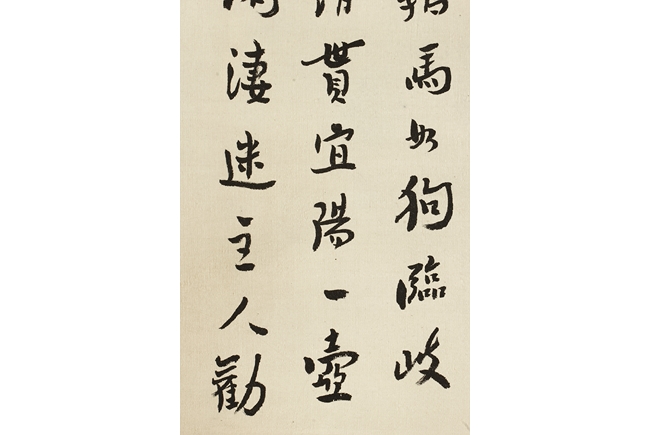 馬如狗臨歧
貰宜陽一壺
淒迷主人勸